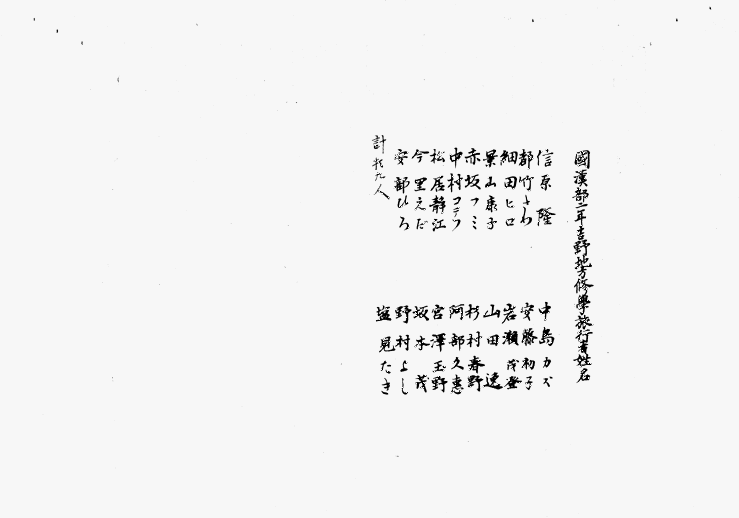 國漢部二年吉野地方修學旅行者姓名
信原隆
都竹よね
細田ヒロ
景山康子
赤坂フミ
中村コテフ
松居静江
今里えだ
安部ひろ
中島カズ
安藤初子
岩瀬茂登
山田逸
杉村春野
阿部久惠
宮澤玉野
坂本茂
野村よし
塩見たき
計拾九人